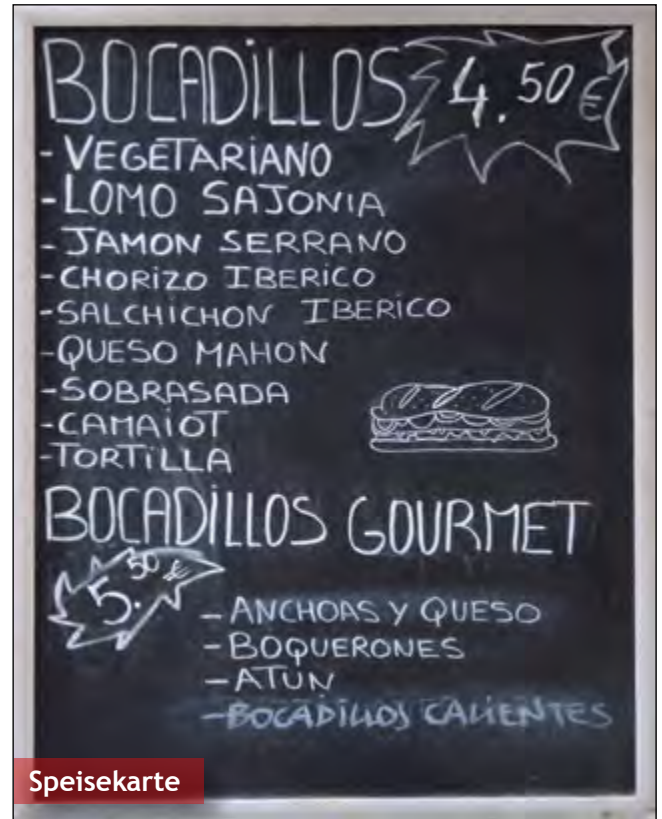 BOCADILLOS 4.50 €
- VEGETARIANO
- LOMO SAJONIA
- JAMON SERRANO
- CHORIZO IBERICO
- SALCHICHON IBERICO
- QUESO MAHON
- SOBRASADA
- CAMAIOT
- TORTILLA
BOCADILLOS GOURMET
5.50 €
- ANCHOAS Y QUESO
- BOQUERONES
- ATUN
- BOCADILLOS CALIENTES
Speisekarte